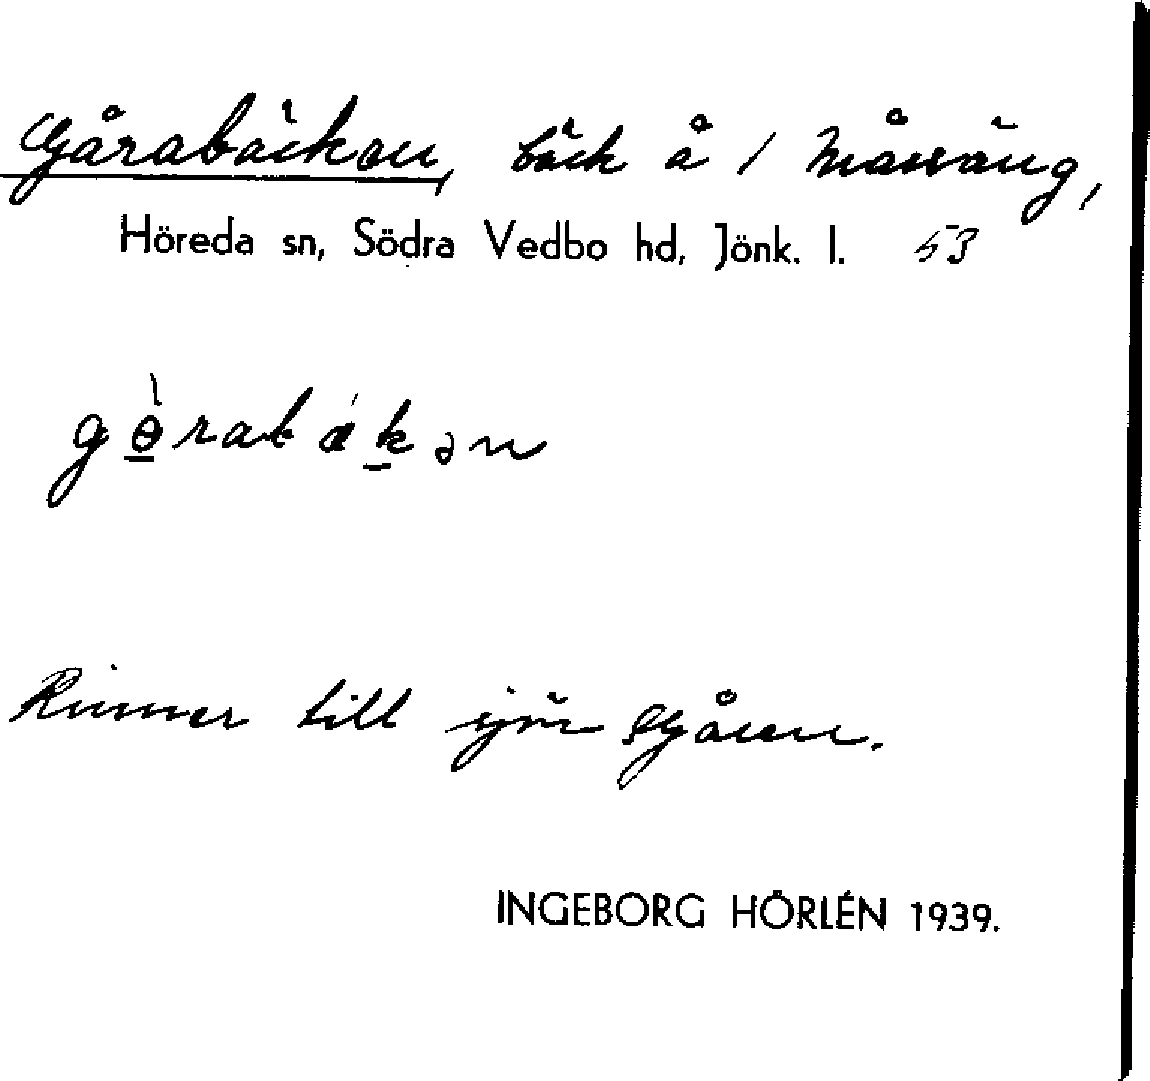 Gårabäcken, bäck å 1 Månsäng,
Höreda sn, Södra Vedbo hd, Jönk. l. 53
gɵ̀rabákən
Rinner till sjön Gåren.
INGEBORG HÖRLÉN 1939.